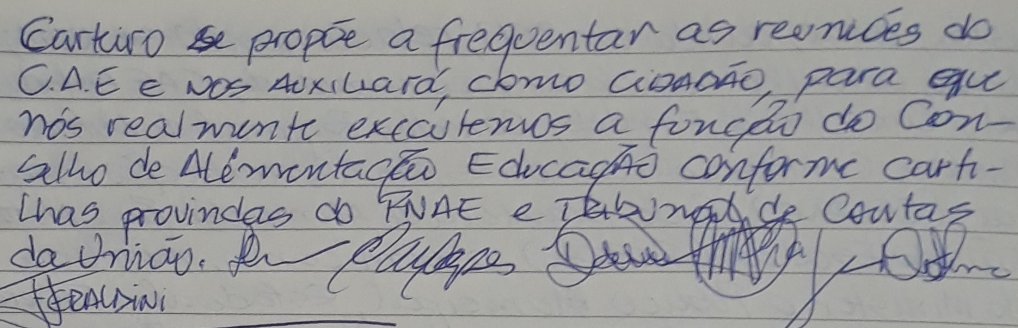 Carteiro se propõe a frequentar as reuniões do
C.A.E e nos auxiliará, como cidadão, para que
nós realmente executemos a função do Con-
selho de Alimentação Educação conforme carti-
lhas provindas do PNAE e Tribunal de Contas
da União.
GERALDINI